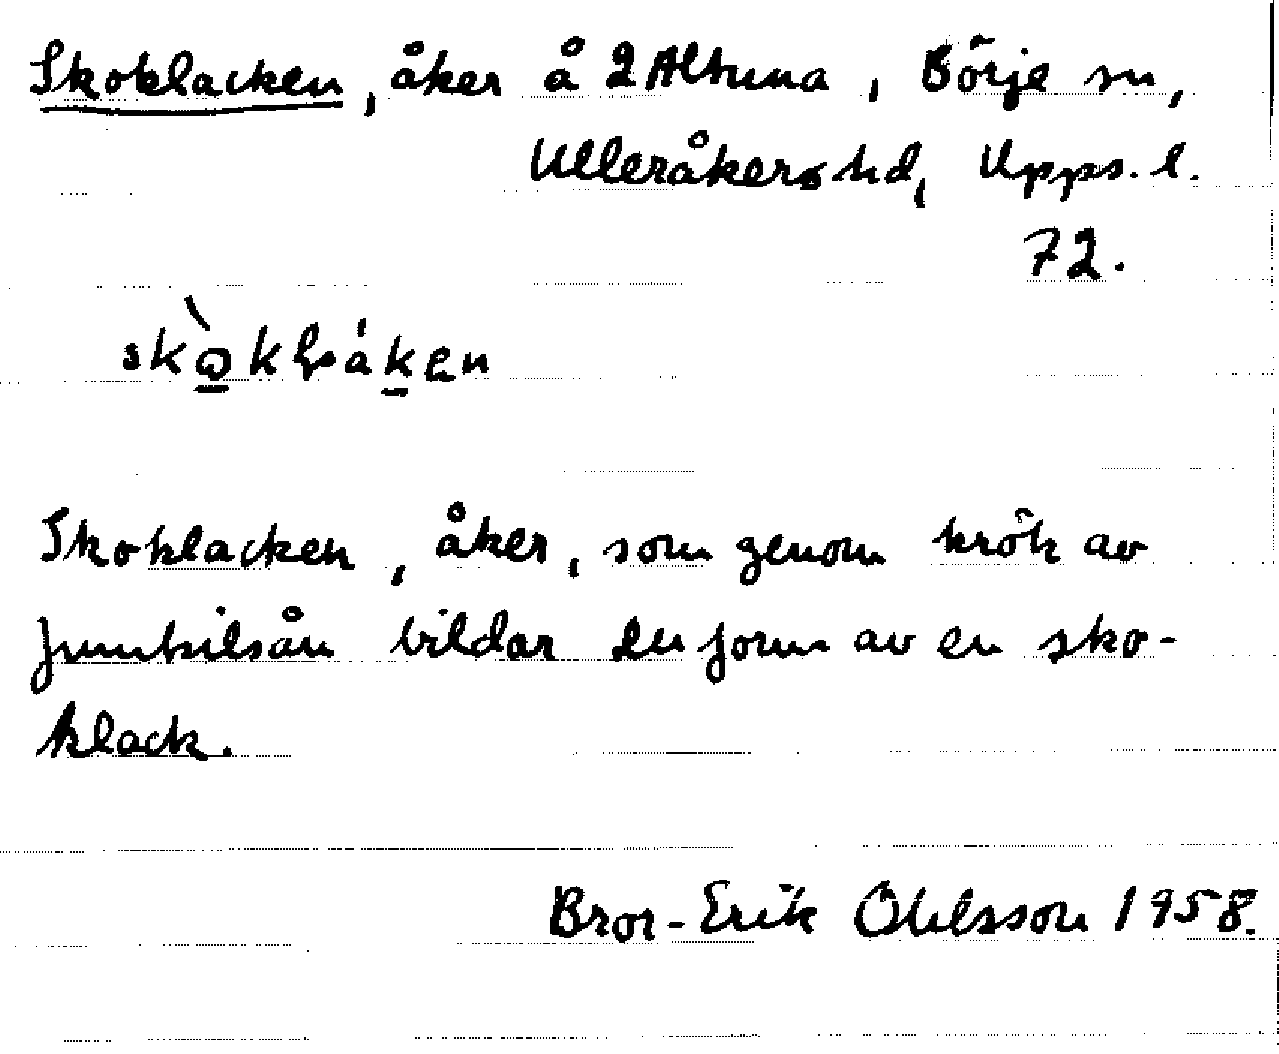 Skoklacken, åker å 2 Altuna, Börje sn,
Ulleråkers hd, Upps. l.
72.
Skoklacken, åker, som genom krök av
Jumkilsån bildar den form av en sko-
klack.
Bror-Erik Ohlsson 1958.